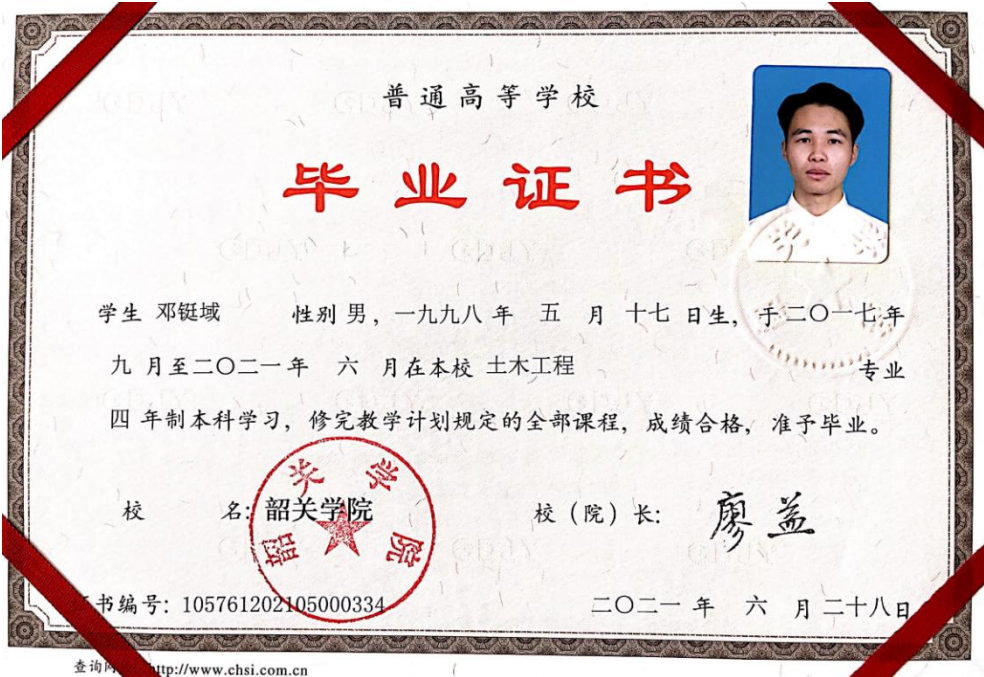 普通高等学校
毕业证书
学生 邓铤域 性别 男，一九九八 年 五 月 十七 日生，于二〇一七年
九 月至二〇二一年 六 月在本校 土木工程 专业
四 年制本科学习，修完教学计划规定的全部课程，成绩合格，准予毕业。
校 名：韶关学院 校（院）长： 廖益
韶关学院
书编号：105761202105000334 二〇二一 年 六 月 二十八日
查询网 http://www.chsi.com.cn